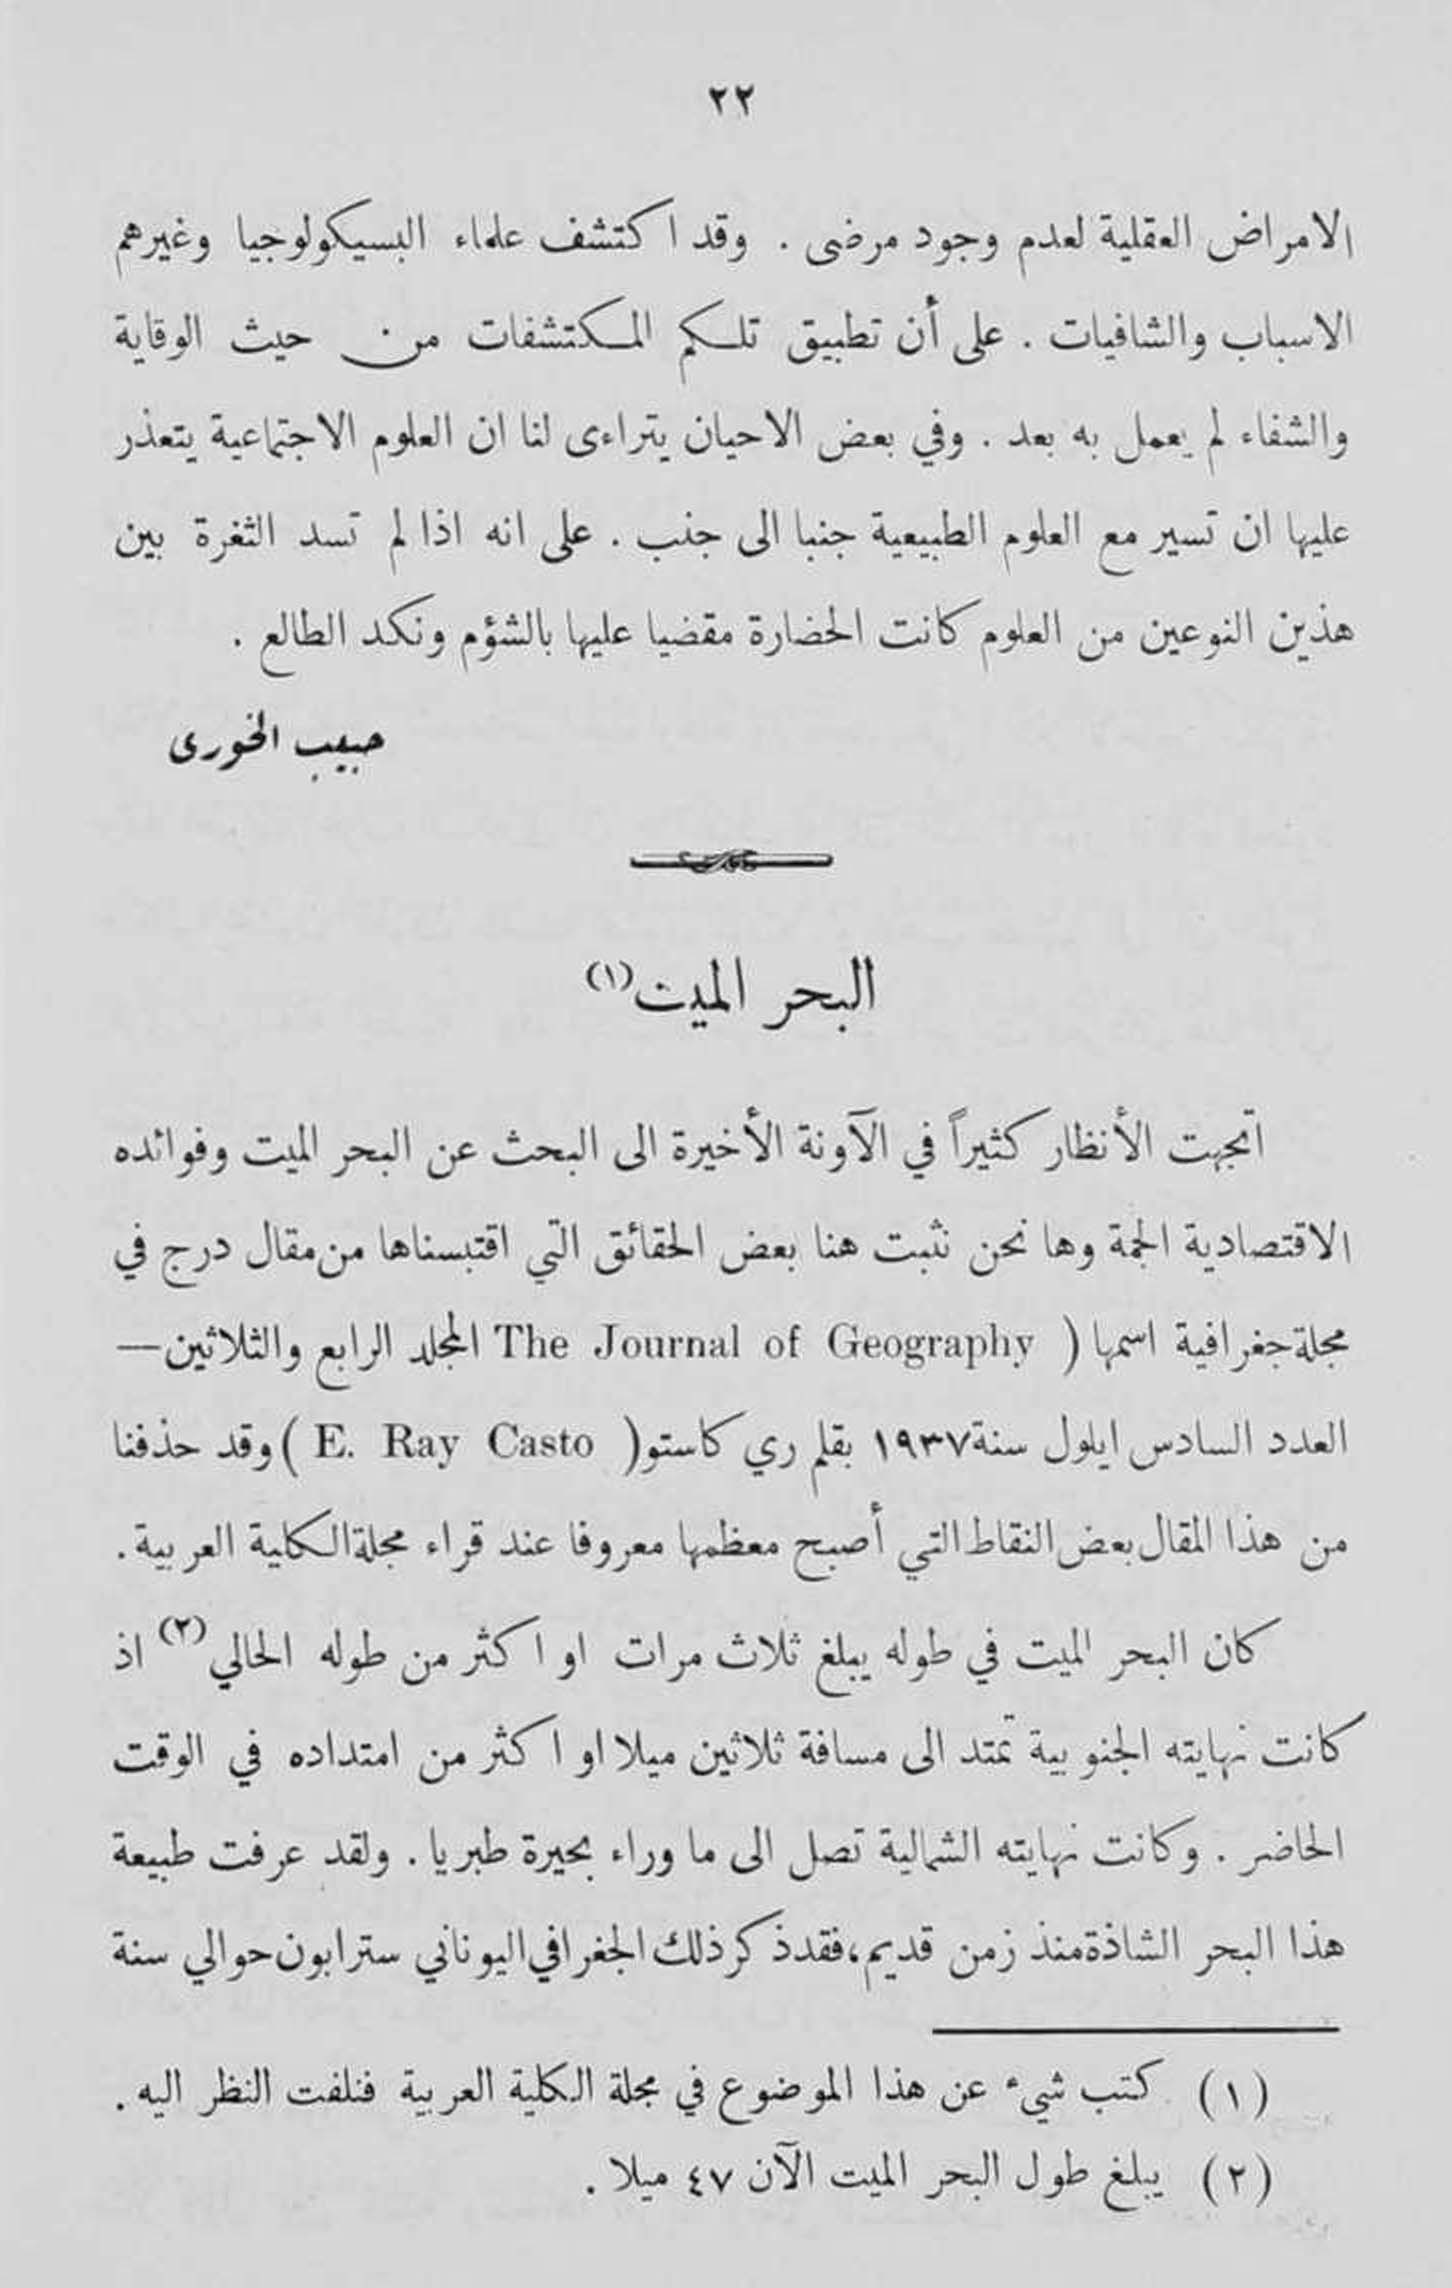 ٢٢
الامراض العقلية لعدم وجود مرضى . وقد اكتشف علماء البسيكولوجيا وغيرهم
الاسباب والشافيات . على أن تطبيق تلكم المكتشفات من حيث الوقاية
والشفاء لم يعمل به بعد . وفي بعض الاحيان يتراءى لنا ان العلوم الاجتماعية يتعذر
عليها ان تسير مع العلوم الطبيعية جنبا الى جنب . على انه اذا لم تسد الثغرة بين
هذين النوعين من العلوم كانت الحضارة مقضيا عليها بالشؤم ونكد الطالع .
حبيب الخورى
البحر الميت (١)
اتجهت الأنظار كثيراً في الآونة الأخيرة الى البحث عن البحر الميت وفوائده
الاقتصادية الجمة وها نحن نثبت هنا بعض الحقائق التي اقتبسناها من مقال درج في
مجلة جغرافية اسمها ( The Journal of Geography المجلد الرابع والثلاثين —
العدد السادس ايلول سنة ١٩٣٧ بقلم ري كاستو ( E. Ray Casto ) وقد حذفنا
من هذا المقال بعض النقاط التي أصبح معظمها معروفا عند قراء مجلة الكلية العربية .
كان البحر الميت في طوله يبلغ ثلاث مرات او اكثر من طوله الحالي (٢) اذ
كانت نهايته الجنوبية تمتد الى مسافة ثلاثين ميلا او اكثر من امتداده في الوقت
الحاضر . وكانت نهايته الشمالية تصل الى ما وراء بحيرة طبريا . ولقد عرفت طبيعة
هذا البحر الشاذة منذ زمن قديم، فقد ذكر ذلك الجغرافي اليوناني سترابون حوالي سنة
(١) كتب شيء عن هذا الموضوع في مجلة الكلية العربية فنلفت النظر اليه .
(٢) يبلغ طول البحر الميت الآن ٤٧ ميلا .